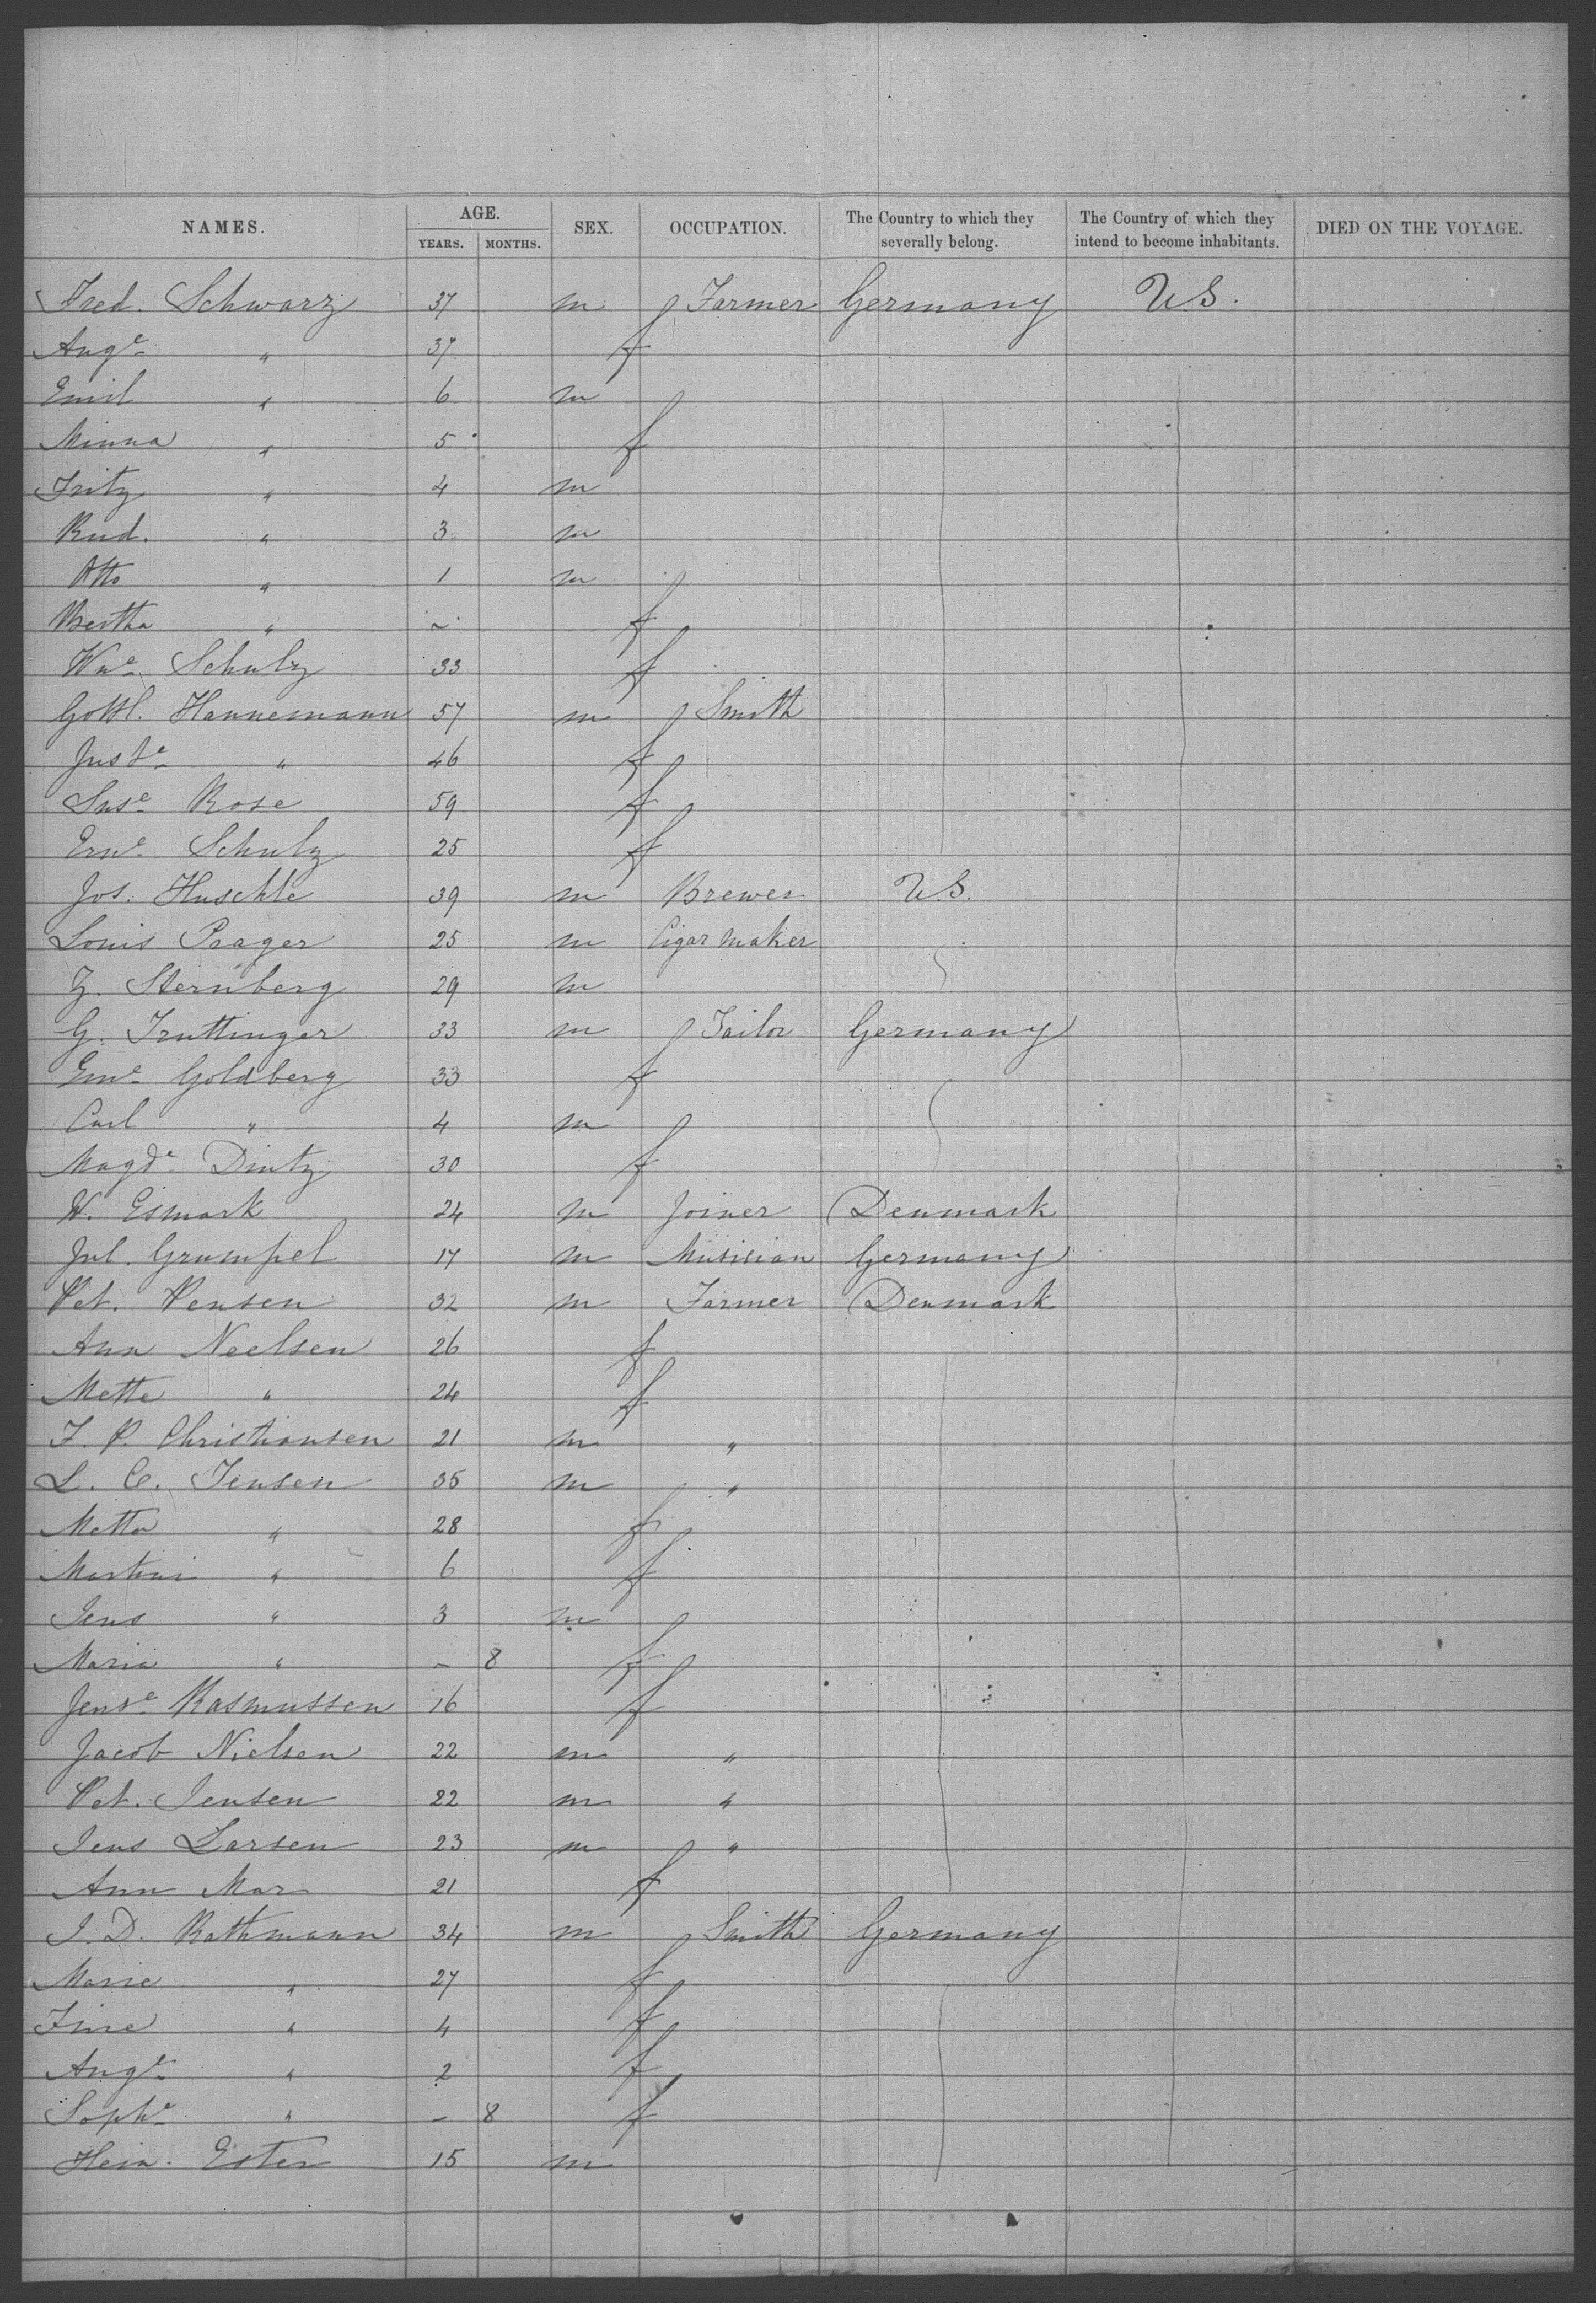 NAMES. AGE. SEX. OCCUPATION. The Country to which they severally belong. The Country of which they intend to become inhabitants. DIED ON THE VOYAGE.
YEARS. MONTHS.
Fred. Schwarz 37 m Farmer Germany U.S.
Auge " 37 f
Emil " 6 m
Minna " 5 f
Fritz " 4 m
Rud. " 3 m
Otto " 1 m
Bertha " f
Wne Schulz 33 f
Gottl. Hannemann 57 m Smith
Juste " 46 f
Suse Rose 59 f
Erne Schulz 25 f
Jos. Huschle 39 m Brewer U.S.
Louis Prager 25 m Cigar maker
Z. Sternberg 29 m
G. Truttinger 33 m Tailor Germany
Eme Goldberg 33 f
Carl " 4 m
Magde Dintz 30 f
W. Esmark 24 m Joiner Denmark
Jul. Grumpel 17 m Musician Germany
Pet. Pensen 32 m Farmer Denmark
Ann Neelsen 26 f
Mette " 24 f
F. P. Christiansen 21 m "
L. C. Jensen 35 m "
Metta " 28 f
" 6 f
Jens " 3 m
Maria " – 8 f
Jense Rasmussen 16 f
Jacob Nielsen 22 m "
Pet. Jensen 22 m "
Jens Larsen 23 m "
Ann Mar 21 f
J. D. Rathmann 34 m Smith Germany
Marie " 27 f
" 4 f
Auge " 2 f
Sophe " – 8 f
Hein. Ester 15 m